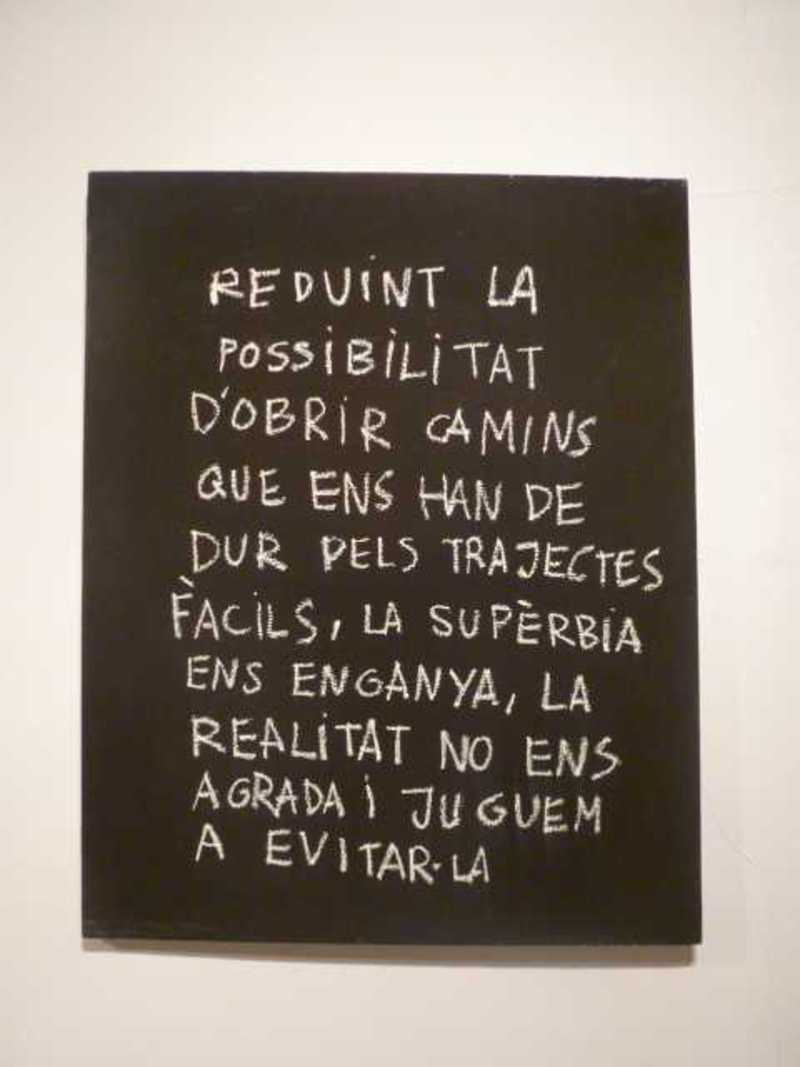 REDUiNT LA
POSSiBiLiTAT
D'OBRiR CAMINS
QUE ENS HAN DE
DUR PELS TRAJECTES
FÀCiLS, LA SUPÈRBiA
ENS ENGANYA, LA
REALiTAT NO ENS
AGRADA i JUGUEM
A EVITAR-LA